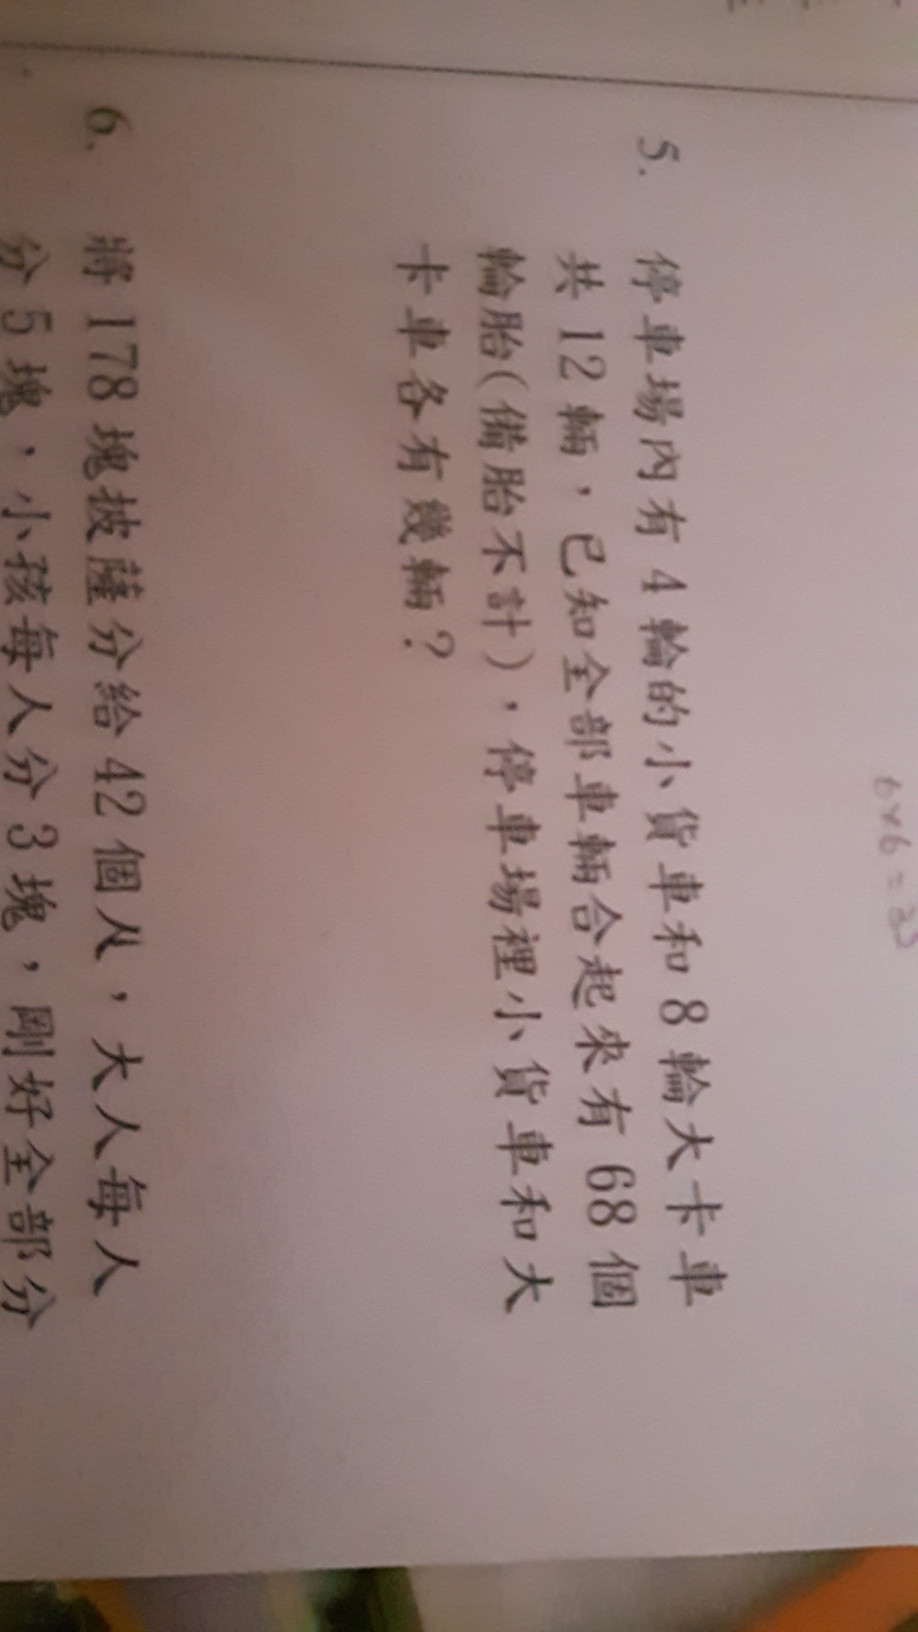 6×6=
5. 停車場內有 4 輪的小貨車和 8 輪大卡車
共 12 輛，已知全部車輛合起來有 68 個
輪胎(備胎不計)，停車場裡小貨車和大
卡車各有幾輛？
6. 將 178 塊披薩分給 42 個人，大人每人
分 5 塊，小孩每人分 3 塊，剛好全部分